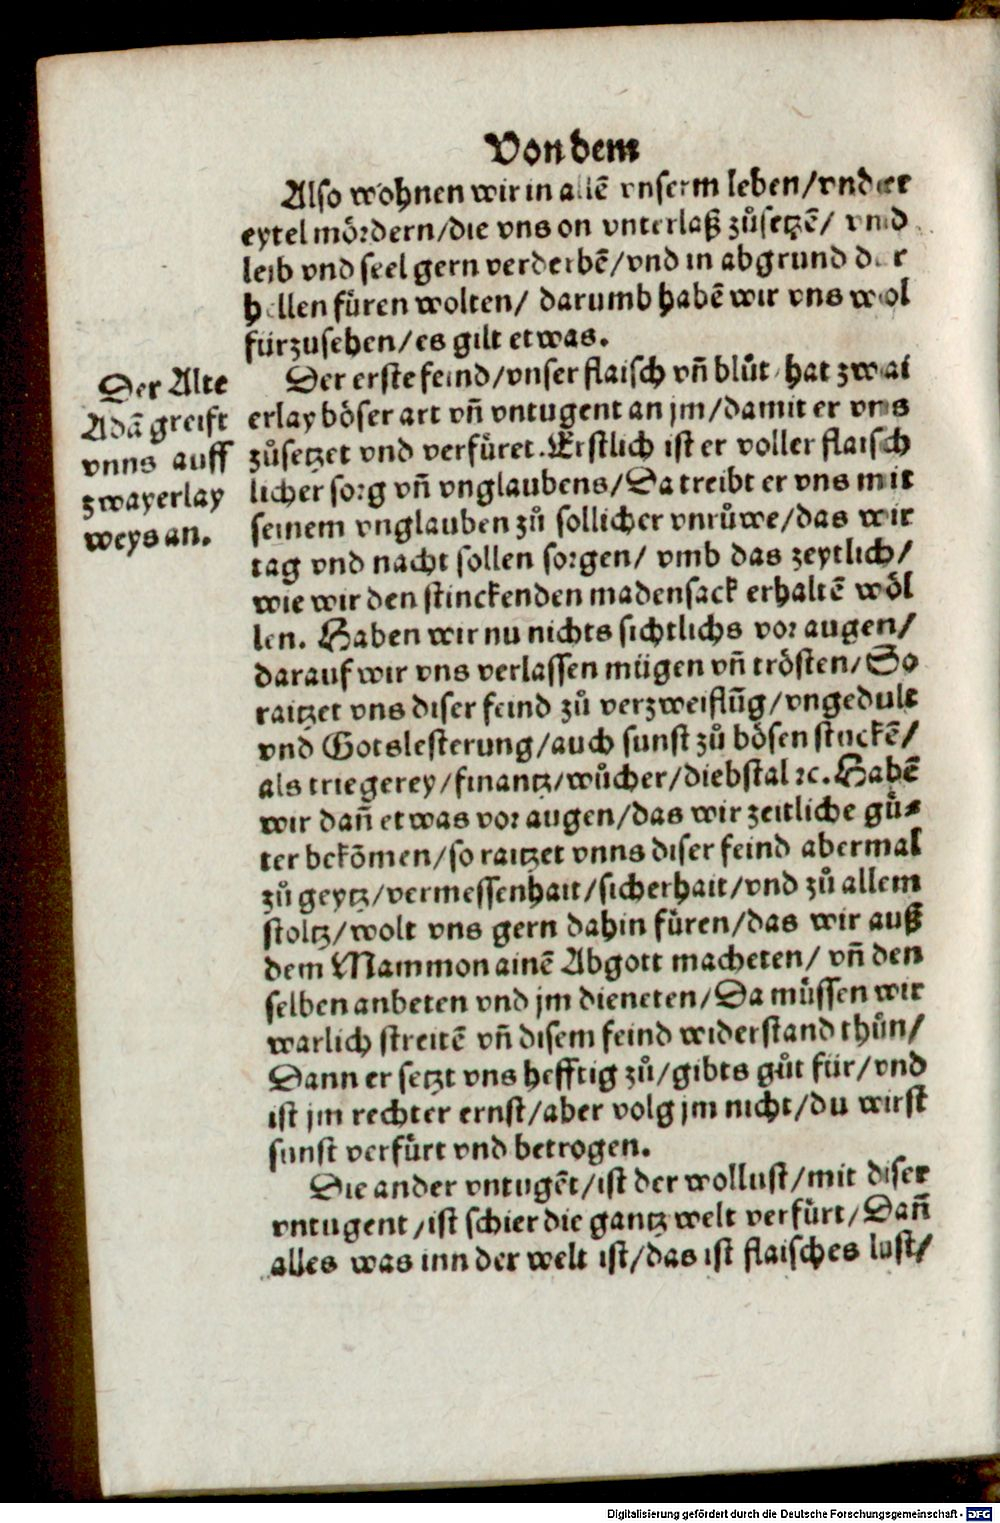 Von dem
Also wohnen wir in allẽ vnserm leben/vnder
eytel mördern/die vns on vnterlaß zůsetzẽ/ vnd
leib vnd seel gern verderbẽ/vnd in abgrund der
hellen füren wolten/ darumb habẽ wir vns wol
fürzusehen/es gilt etwas.
Der Alte
Adã greift
vnns auff
zwayerlay
weys an.
Der erste feind/vnser flaisch vñ blůt/hat zwai
erlay böser art vñ vntugent an jm/damit er vns
zůsetzet vnd verfüret. Erstlich ist er voller flaisch
licher sorg vñ vnglaubens/Da treibt er vns mit
seinem vnglauben zů sollicher vnrůwe/das wir
tag vnd nacht sollen sorgen/ vmb das zeytlich/
wie wir den stinckenden madensack erhaltẽ wöl
len. Haben wir nu nichts sichtlichs vor augen/
darauf wir vns verlassen mügen vñ trösten/So
raitzet vns diser feind zů verzweiflũg/vngedult
vnd Gotslesterung/auch sunst zů bösen stuckẽ/
als triegerey/finantz/wůcher/diebstal ꝛc. Habẽ
wir dañ etwas vor augen/das wir zeitliche gü⸗
ter bekõmen/so raitzet vnns diser feind abermal
zů geytz/vermessenhait/sicherhait/vnd zů allem
stoltz/wolt vns gern dahin füren/das wir auß
dem Mammon ainẽ Abgott macheten/ vñ den
selben anbeten vnd jm dieneten/Da müssen wir
warlich streitẽ vñ disem feind widerstand thůn/
Dann er setzt vns hefftig zů/gibts gůt für/vnd
ist jm rechter ernst/aber volg jm nicht/du wirst
sunst verfürt vnd betrogen.
Die ander vntugẽt/ist der wollust/mit diser
vntugent/ist schier die gantz welt verfürt/Dañ
alles was inn der welt ist/das ist flaisches lust/
Digitalisierung gefördert durch die Deutsche Forschungsgemeinschaft - DFG